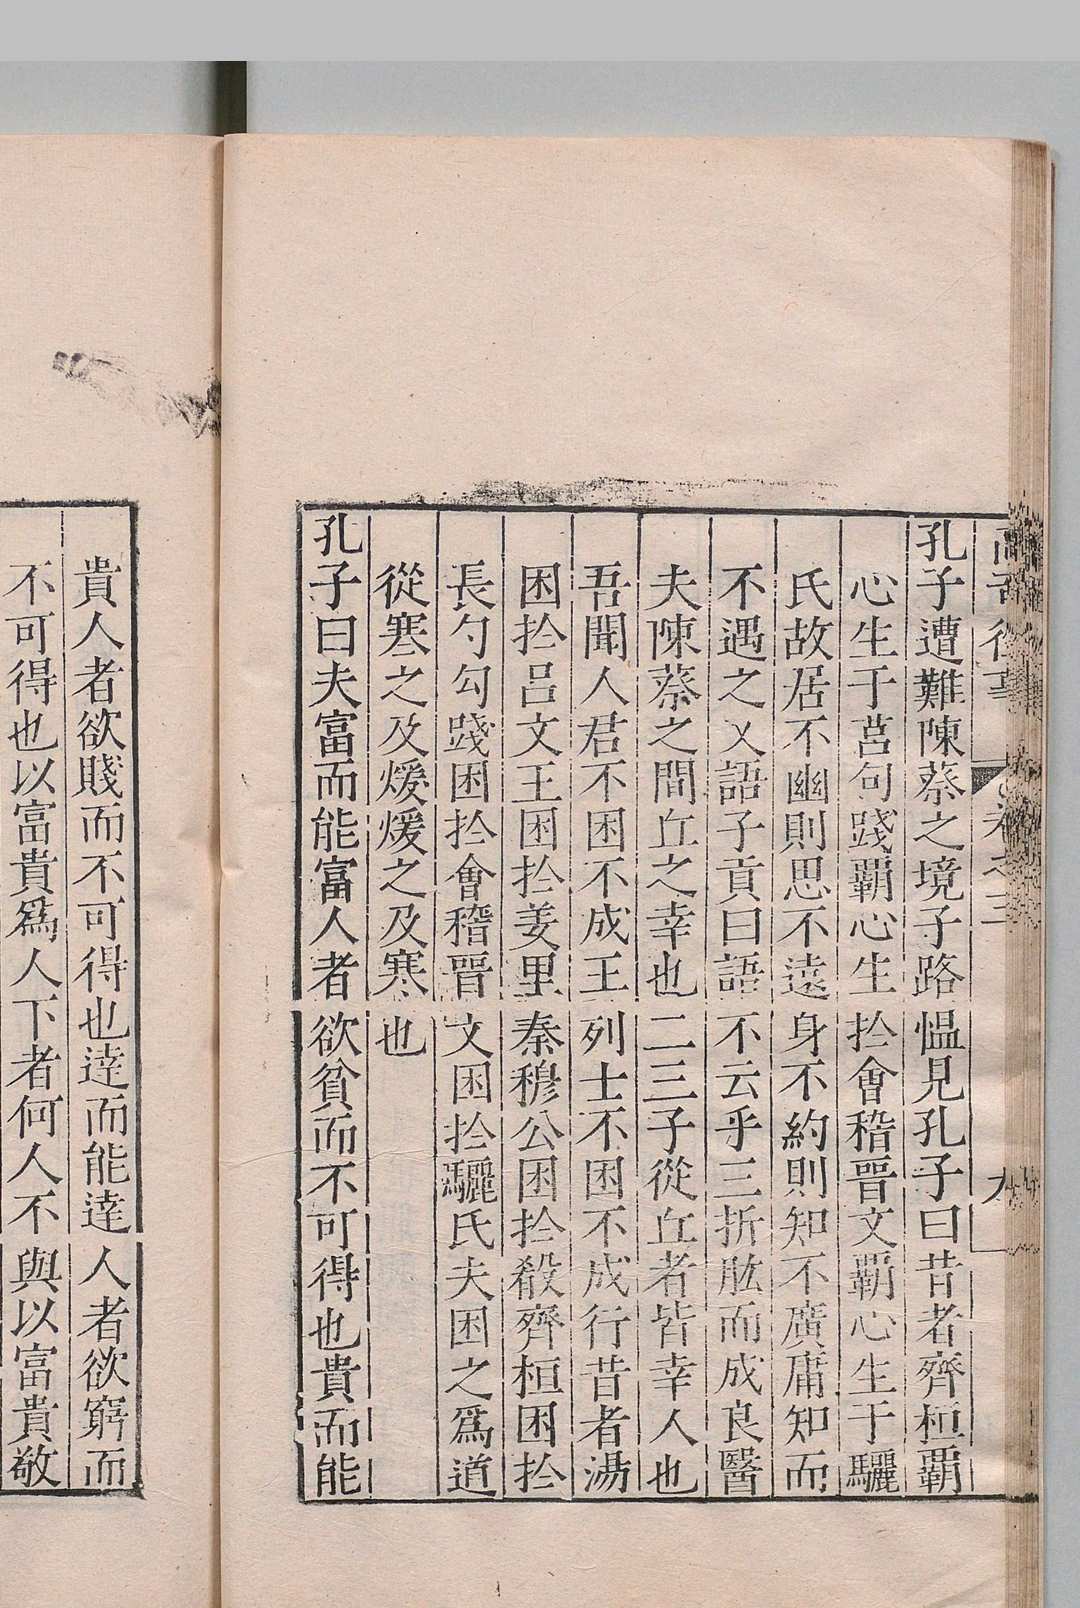 卷之三 九
孔子遭難陳蔡之境子路慍見孔子曰昔者齊桓覇
心生于莒句踐覇心生扵會稽晉文覇心生于驪
氏故居不幽則思不遠身不約則知不廣庸知而
不遇之乂語子貢曰語不云乎三折肱而成良醫
夫陳蔡之間丘之幸也二三子從丘者皆幸人也
吾聞人君不困不成王列士不困不成行昔者湯
困扵呂文王困扵姜里秦穆公困扵殽齊桓困扵
長勺勾踐困扵會稽晉文困扵驪氏夫困之爲道
從寒之及煖煖之及寒也
孔子曰夫富而能富人者欲貧而不可得也貴而能
貴人者欲賤而不可得也逹而能逹人者欲窮而
不可得也以富貴爲人下者何人不與以富貴敬